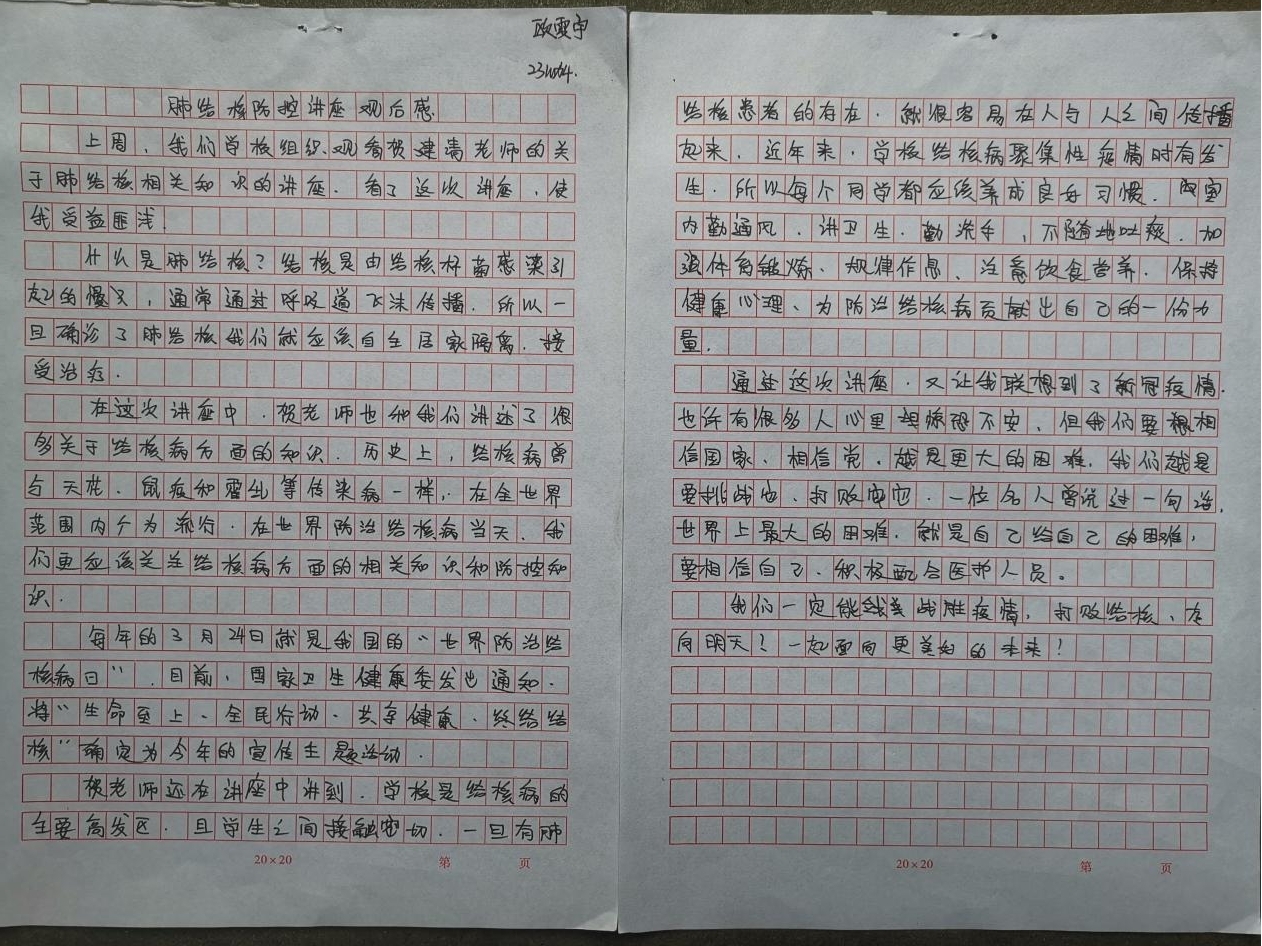 欧雯宇
肺结核防控讲座观后感
上周，我们学校组织观看贺建清老师的关
于肺结核相关知识的讲座．看了这次讲座，使
我受益匪浅．
什么是肺结核？结核是由结核杆菌感染引
起的慢，通常通过呼吸道飞沫传播．所以一
旦确诊了肺结核我们就应该自主居家隔离，接
受治疗．
在这次讲座中，贺老师也和我们讲述了很
多关于结核病方面的知识．历史上，结核病曾
与天花、鼠疫和霍乱等传染病一样，在全世界
范围内广为流行．在世界防治结核病当天，我
们更应该关注结核病方面的相关知识和防控知
识．
每年的3月24日就是我国的“世界防治结
核病日”．目前，国家卫生健康委发出通知．
将“生命至上、全民行动、共享健康、终结结
核”确定为今年的宣传主题活动．
贺老师还在讲座中讲到，学校是结核病的
主要高发区．且学生之间接触密切．一旦有肺
结核患者的存在．就很容易在人与人之间传播
起来．近年来，学校结核病聚集性疫情时有发
生．所以每个同学都应该养成良好习惯．室
内勤通风、讲卫生．勤洗手，不随地吐痰．加
强体育锻炼、规律作息、注意饮食营养．保持
健康心理、为防治结核病贡献出自己的一份力
量．
通过这次讲座．又让我联想到了新冠疫情．
也许有很多人心里惊恐不安，但我们要相
信国家、相信党．越是更大的困难．我们越是
要挑战它、打败它．一位名人曾说过一句话，
世界上最大的困难．就是自己给自己的困难，
要相信自己、积极配合医护人员。
我们一定能战胜疫情，打败结核、走
向明天！一起面向更美好的未来！
20×20 第 页
20×20 第 页